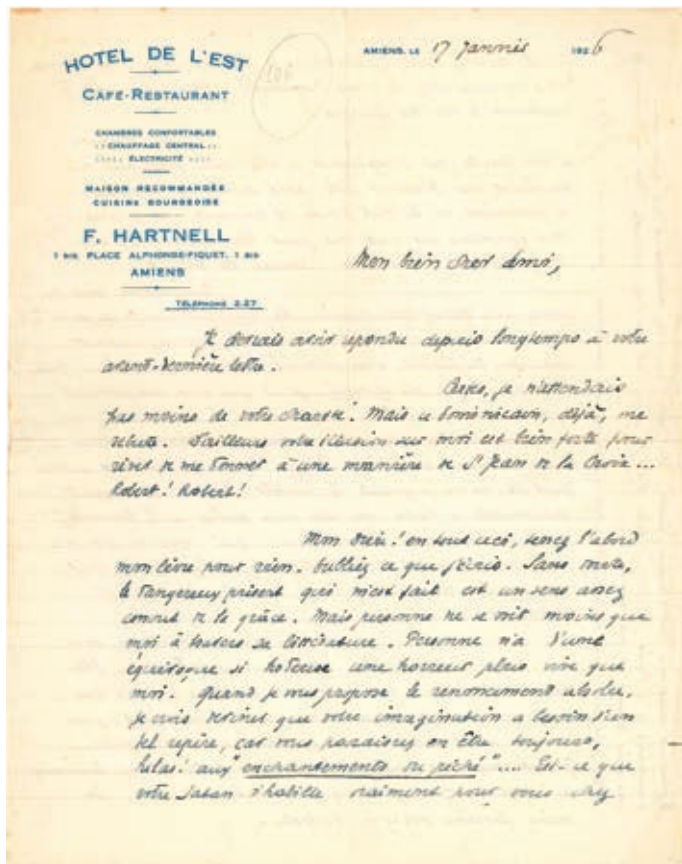 HOTEL DE L'EST
CAFÉ-RESTAURANT
CHAMBRES CONFORTABLES
CHAUFFAGE CENTRAL
ÉLECTRICITÉ
MAISON RECOMMANDÉE
CUISINE BOURGEOISE
F. HARTNELL
1 BIS PLACE ALPHONSE-FIQUET, 1 BIS
AMIENS
TÉLÉPHONE 2-27
AMIENS, LE 17 Janvier 1926
Mon bien cher ami,
Je devrais avoir répondu depuis longtemps à votre
avant-dernière lettre.
Certes, je n'attendais
pas moins de votre charité. Mais ce dominicain, déjà, me
rebute. D'ailleurs votre illusion sur moi est bien forte pour
rêver de me donner à une manière de St Jean de la Croix...
Robert! Robert!
Mon Dieu! en tout ceci, tenez d'abord
mon livre pour rien. Oubliez ce que j'écris. Sans doute,
le dangereux présent qui m'est fait est un sens assez
de la grâce. Mais personne ne se voit moins que
moi à travers sa littérature. Personne n'a d'une
équivoque si honteuse une horreur plus vive que
moi. Quand je vous propose le renoncement absolu,
je crois deviner que votre imagination a besoin d'un
tel repère, car vous paraissez en être toujours,
hélas! aux "enchantements du péché".... Est-ce que
votre Satan s'habille vraiment pour vous chez